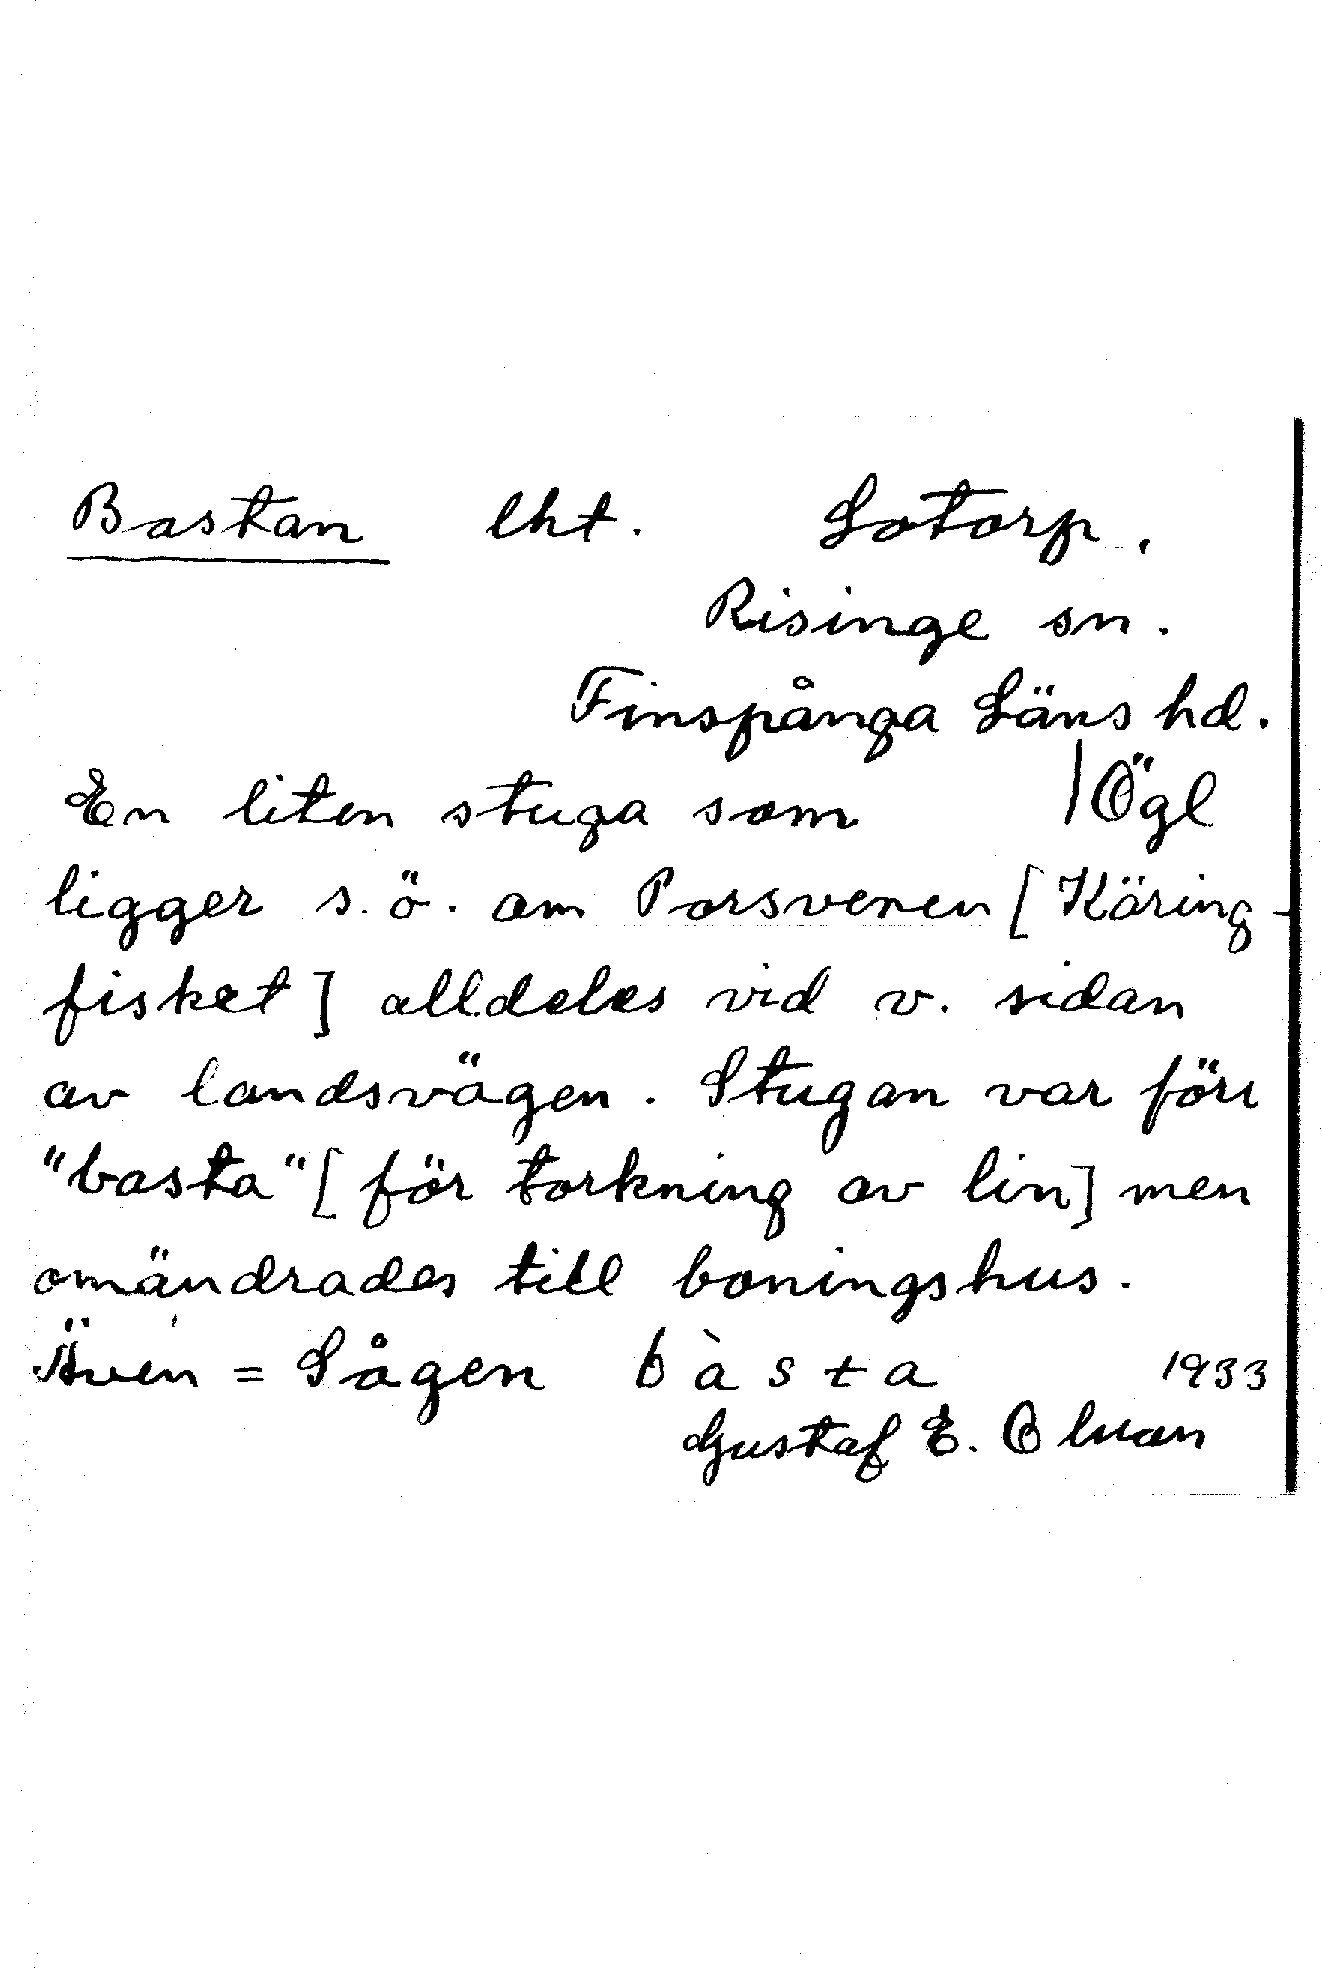 Bastan lht. Lotorp.
Risinge sn.
Finspånga Läns hd.
En liten stuga som /Ögl
ligger s.ö. om Porsveren [Käring-
fisket] alldeles vid v. sidan
av landsvägen. Stugan var förr
"basta" [för torkning av lin] men
omändrades till boningshus.
Även = Sågen bàsta 1933
Gustaf E.